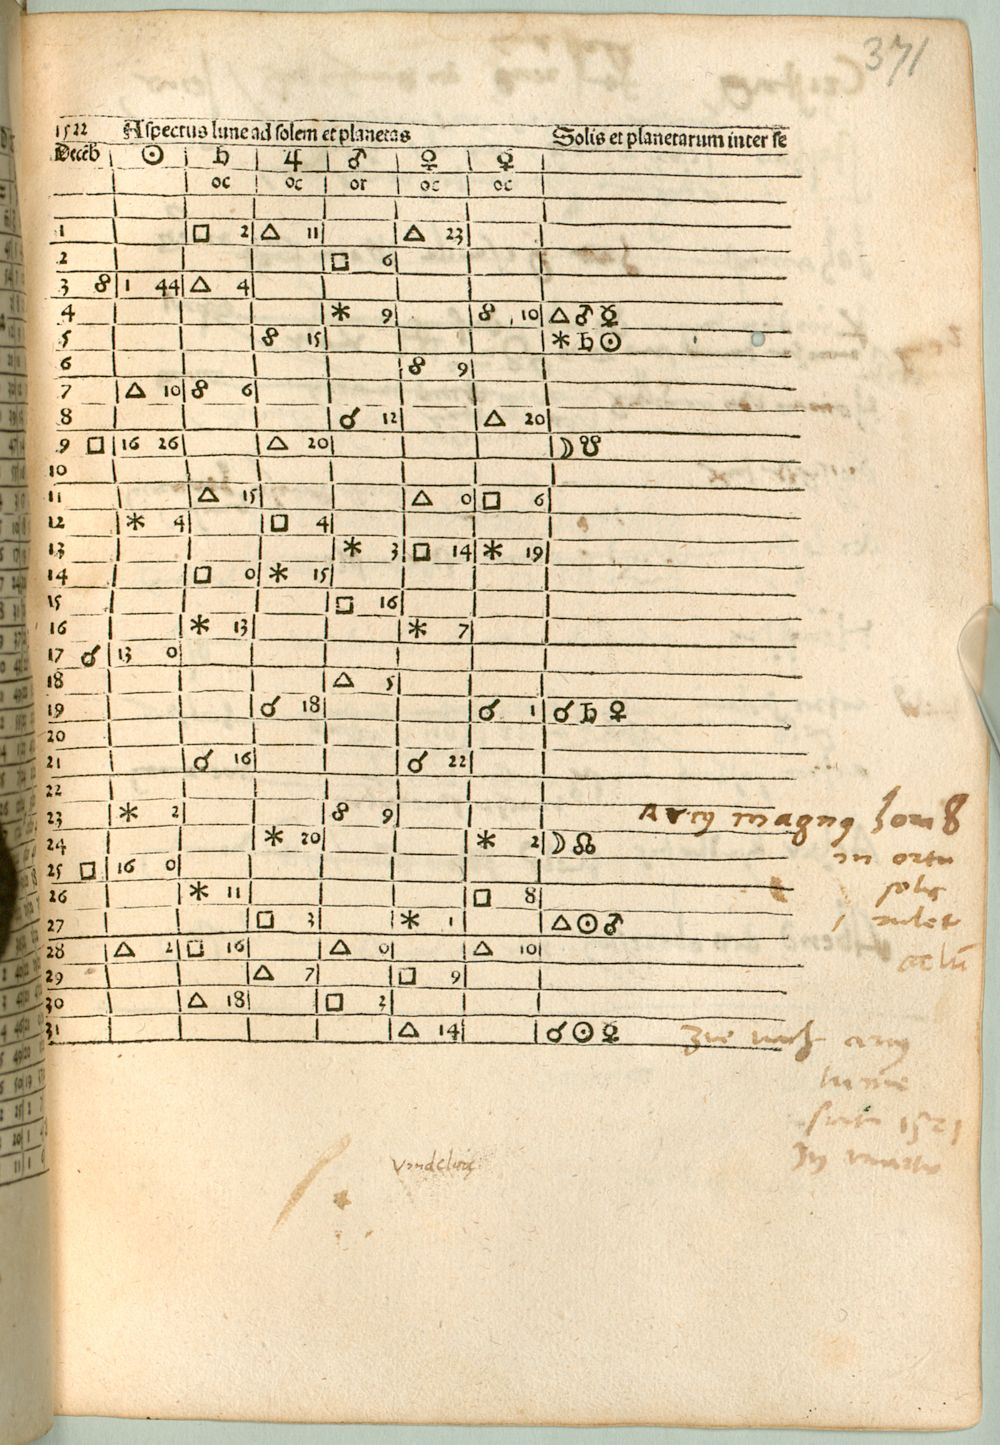 371
1522 Aspectus lune ad solem et planetas Solis et planetarum inter se
Decēb ☉ ♄ ♃ ♂ ♀ ☿
oc oc or oc oc
1 □ 2 △ 11 △ 23
2 □ 6
3 ☍ 1 44 △ 4
4 ⚹ 9 ☍ 10 △ ♂ ☿
5 ☍ 15 ⚹ ♄ ☉
6 ☍ 9
7 △ 10 ☍ 6
8 ☌ 12 △ 20
9 □ 16 26 △ 20 ☽ ☋
10
11 △ 15 △ 0 □ 6
12 ⚹ 4 □ 4
13 ⚹ 3 □ 14 ⚹ 19
14 □ 0 ⚹ 15
15 □ 16
16 ⚹ 13 ⚹ 7
17 ☌ 13 0
18 △ 5
19 ☌ 18 ☌ 1 ☌ ♄ ♀
20
21 ☌ 16 ☌ 22
22
23 ⚹ 2 ☍ 9
magng hora 8
24 ⚹ 20 ⚹ 2 ☽ ☊
in ortu
25 □ 16 0
solis
26 ⚹ 11 □ 8
27 □ 3 ⚹ 1 △ ☉ ♂
28 △ 2 □ 16 △ 0 △ 10
29 △ 7 □ 9
30 △ 18 □ 2
31 △ 14 ☌ ☉ ☿
1521